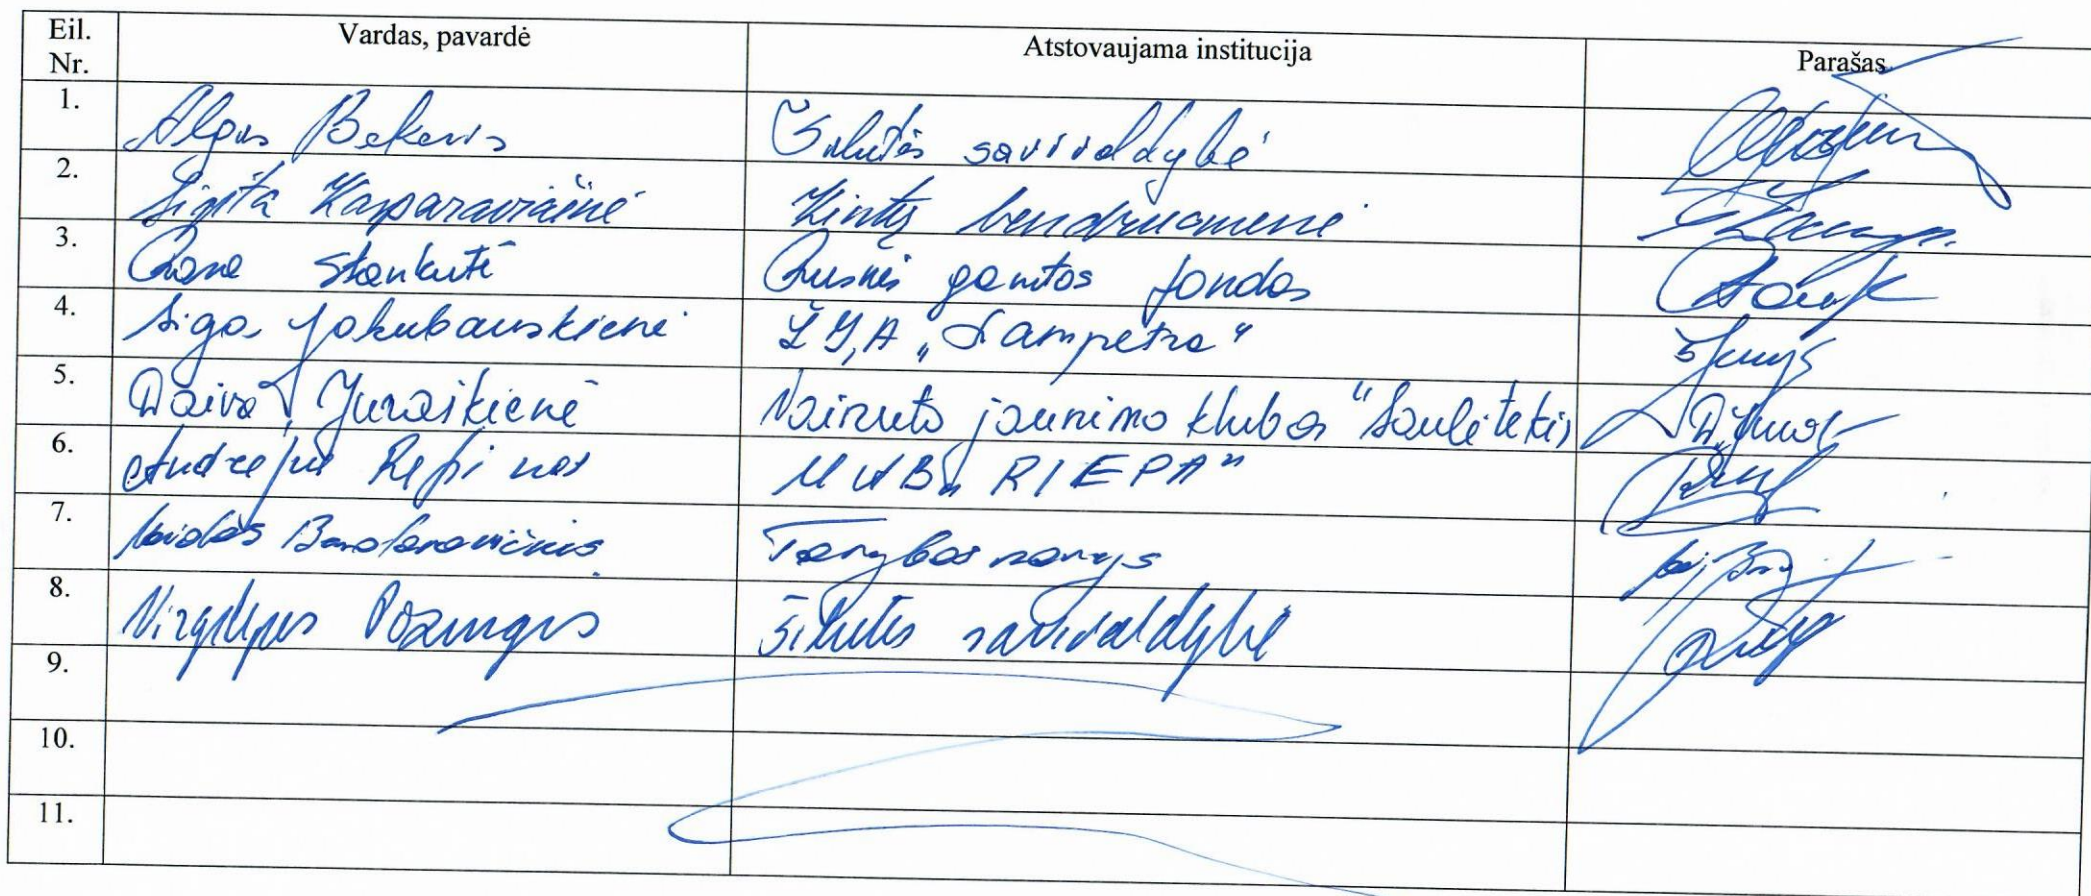 Eil. Nr. Vardas, pavardė Atstovaujama institucija Parašas
1. Algis Bekeris Šilutės savivaldybė
2. Sigita Kasparavičienė Kintų bendruomenė
3. Rasa Stankutė Rusnės gamtos fondas
4. Siga Jakubauskienė ŽŪA „Lampetra"
5. Daiva Juraškienė jaunimo klubas "Saulėtekis
6. Andrejus Repinas "RIEPA"
7. Tarybos narys
8. Virgilijus Pozingis Šilutės savivaldybė
9.
10.
11.